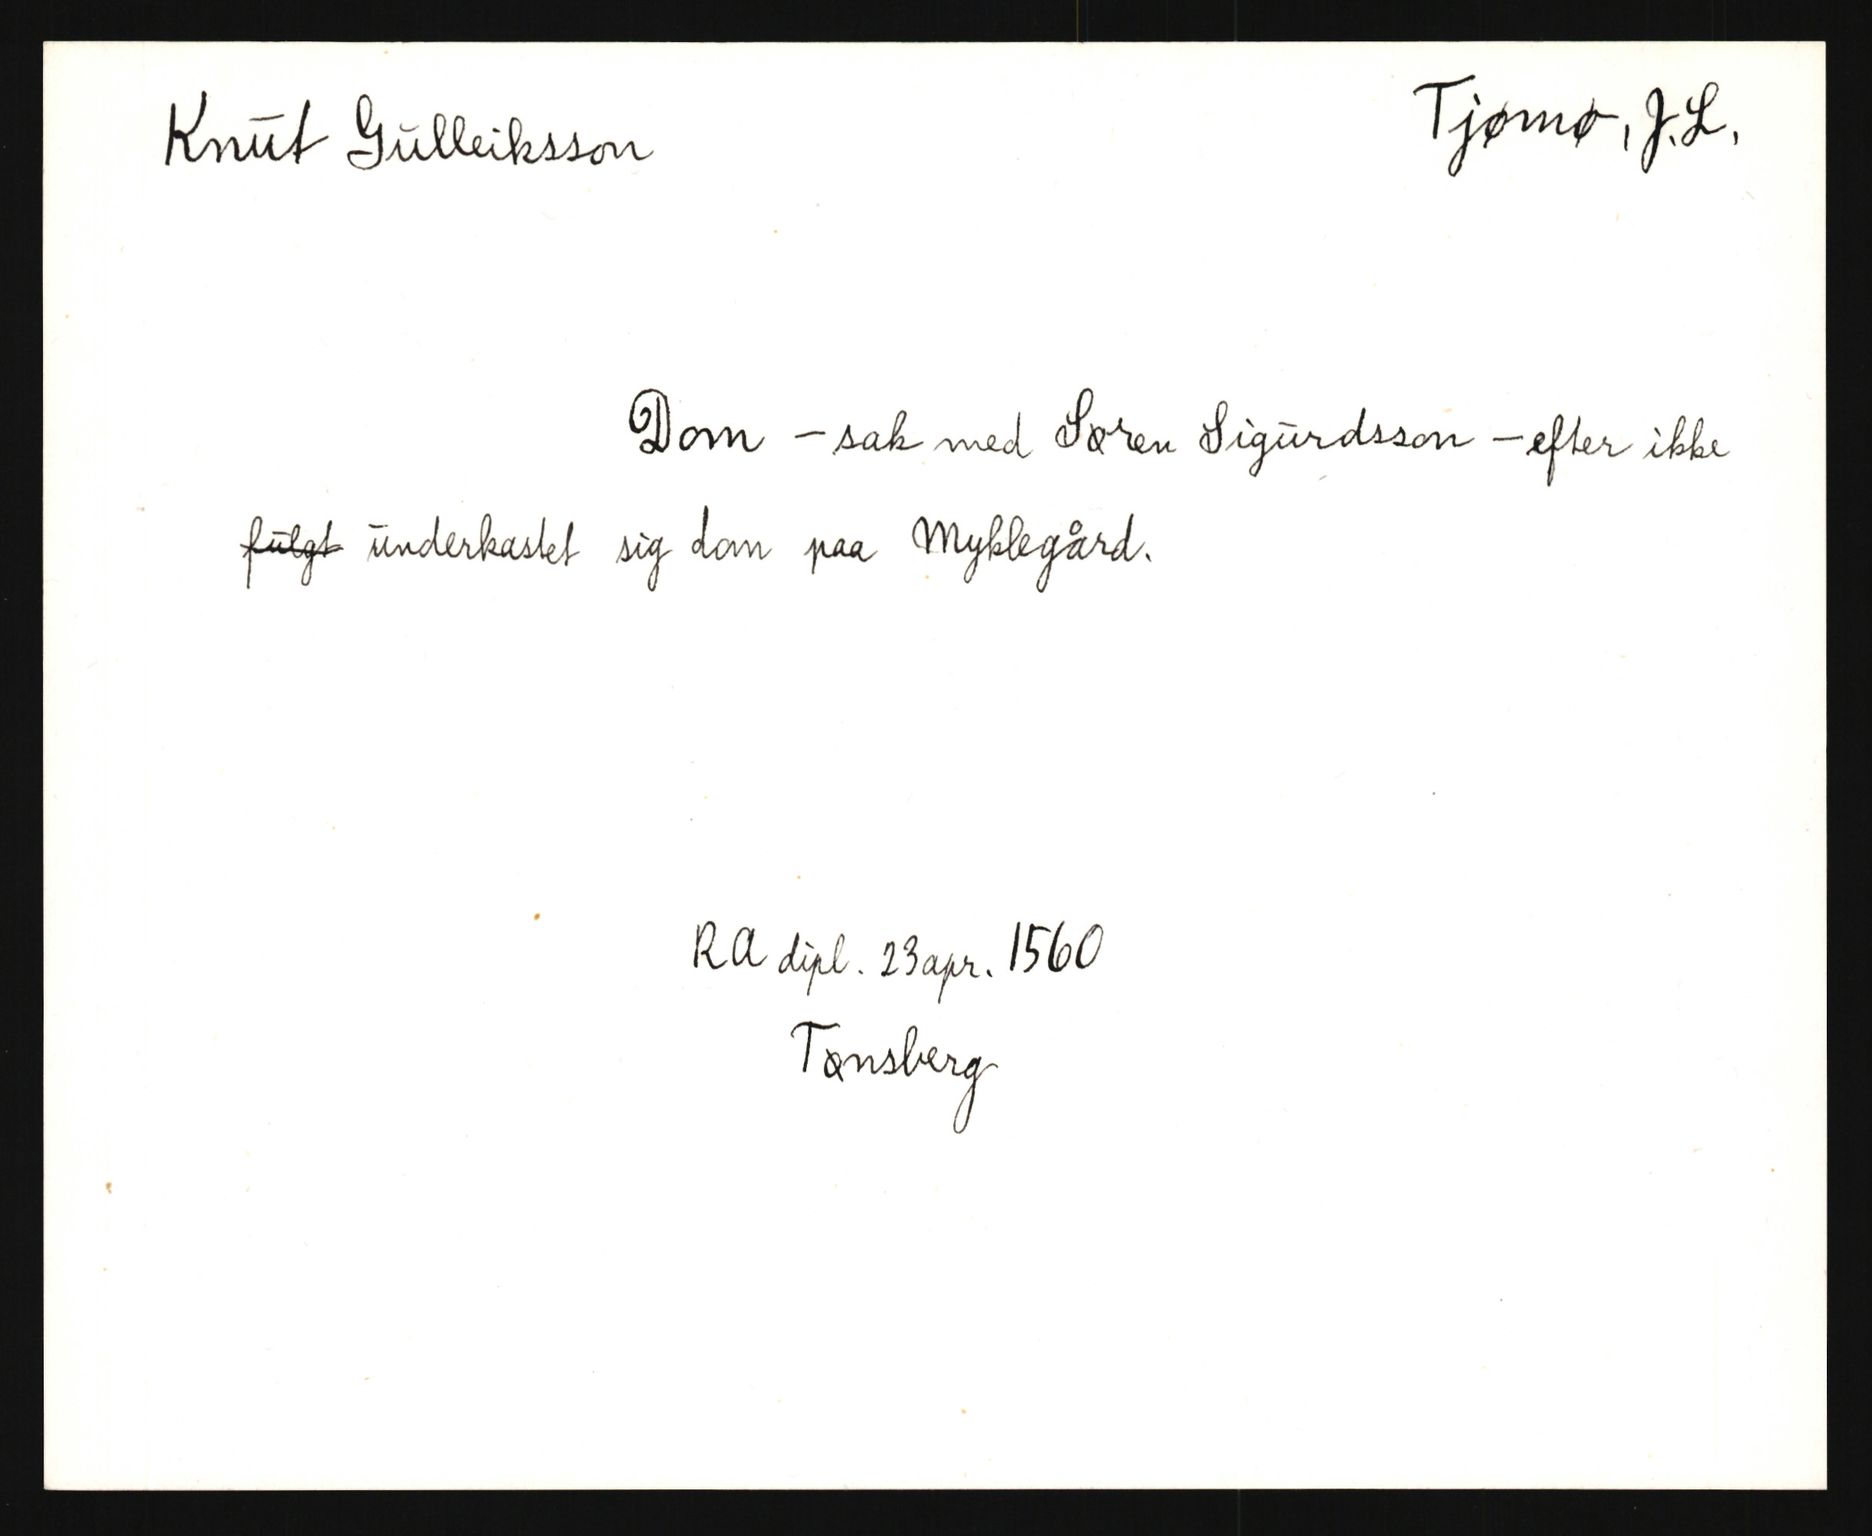 Knut Gulleiksson
Tjømø, J.L.
Dom – sak med Søren Sigurdsson – efter ikke
fulgt underkastet sig dom paa Myklegård.
RA dipl. 23 apr. 1560
Tønsberg